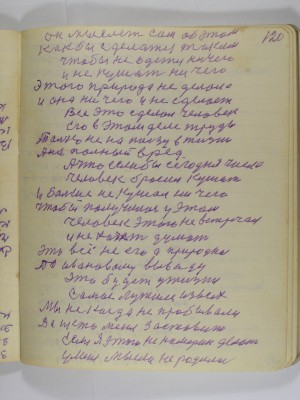 120
он мыслет сам об этом
как бы сделать таким
чтобы не одеть ничего
и не кушат ни чего
Этого природа не делала
и она ни чего и не сделает
Все Это сделал человек
Его в Этом деле труды
Только не на пользу в жизни
А на полный вред
А то если бы сегодня
человек бросил кушат
и больше не кушал ни чего
чтобы получилос у Этом
человек Этого не встречал
и не хотят думат
Это всё не его а природы
По ивановому выводу
Это будет у жизни
Самое лучшее из всех
Мы не когда не пробывали
За што меня заставит
если я Этого не намерен делать
у меня мысли не родили